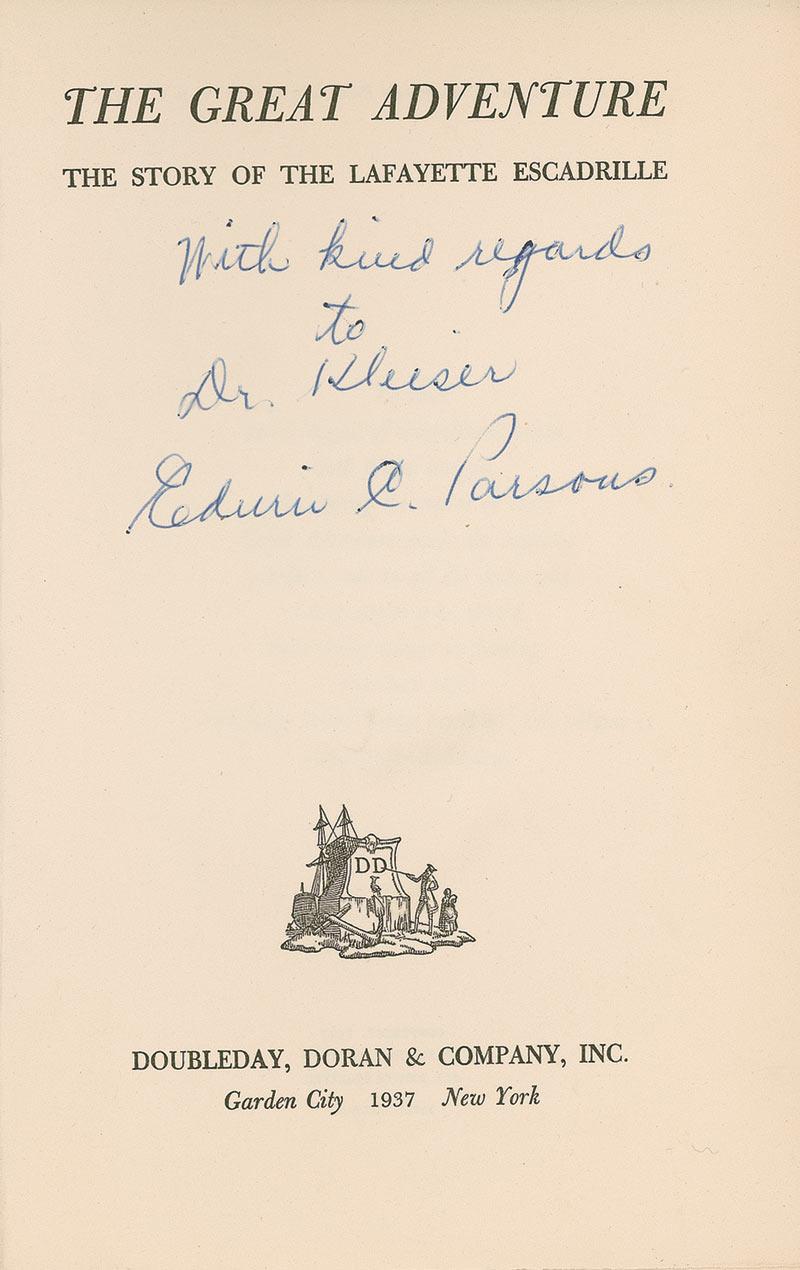 THE GREAT ADVENTURE
THE STORY OF THE LAFAYETTE ESCADRILLE
With kind regards
to
Dr. Kleiser
Edwin C. Parsons.
DD
DOUBLEDAY, DORAN & COMPANY, INC.
Garden City 1937 New York